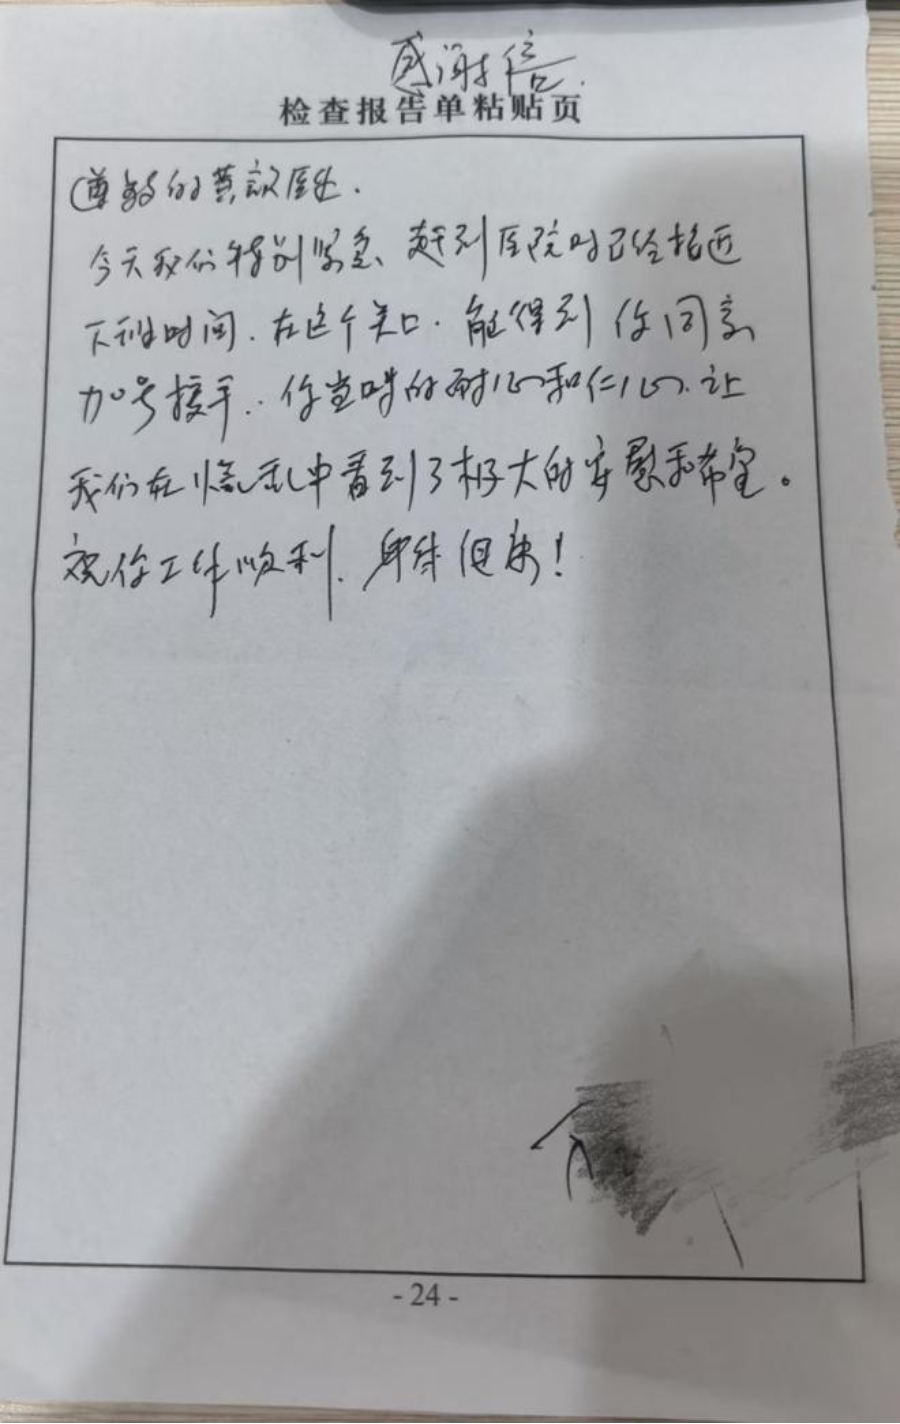 感谢信.
检查报告单粘贴页
尊敬的黄 医生.
今天我们特别紧急、赶到医院时已经接近
下班时间.在这个关口.能得到你同意
加号接手..你当时的耐心和仁心.让
我们在慌乱中看到了极大的安慰和希望。
祝你工作顺利.身体健康!
- 24 -